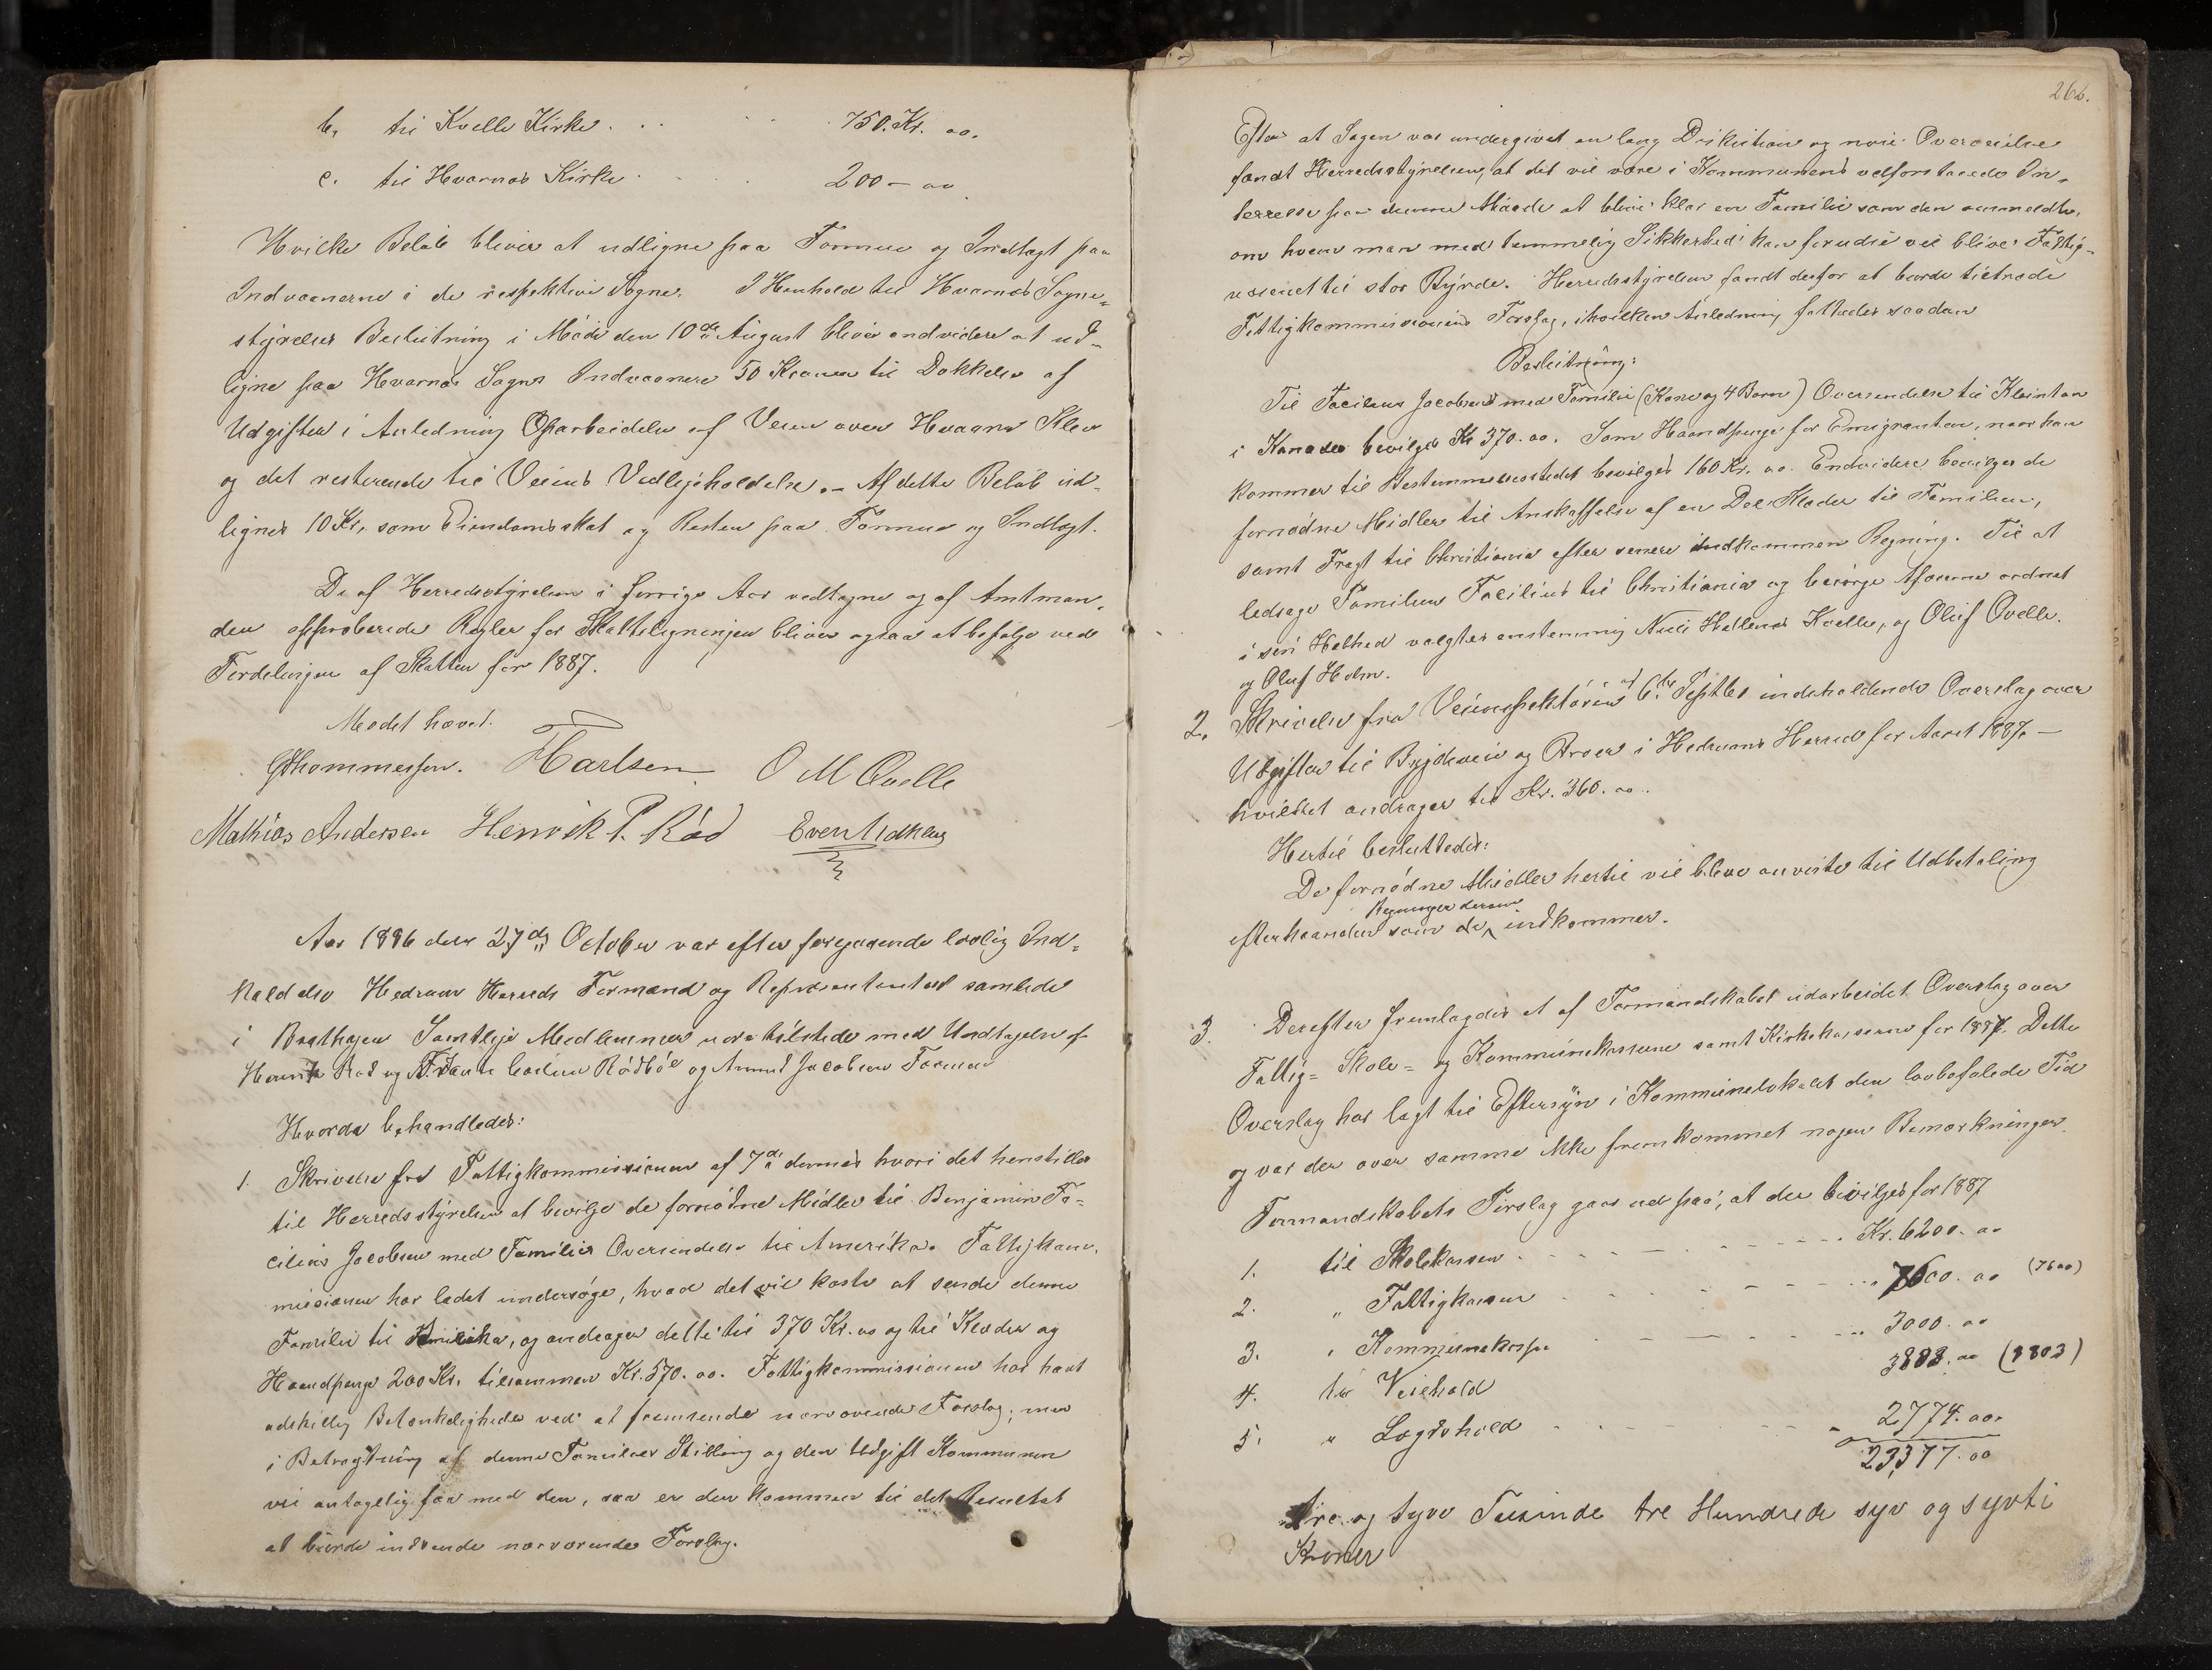 b. til Kvelle Kirke . . . . 750. Kr. oo.
c. til Hvarnæs Kirke . . . . 200 — oo
Hvilke Beløb bliver at udligne paa Formue og Indtægt paa
Indvaanerne i de respektive Sogne. I Henhold til Hvarnæs Sogne-
styrelses Beslutning i Møde den 10de August bliver endvidere at ud-
ligne paa Hvarnæs Sogns Indvaanere 50 Kroner til Dækkelse af
Udgifter i Anledning Oparbeidelse af Veien over Hvaarns Klev
og det resterende til Veiens Vedligeholdelse. – Af dette Beløb ud-
lignes 10 Kr. som Eiendomsskat og Resten paa Formue og Indtægt.
De af Herredsstyrelsen i forrige Aar vedtagne og af Amtman-
den approberede Regler for Skatteligningen bliver ogsaa at befølge ved
Fordelingen af Skatten for 1887.
Mødet hævet.
GThommessen. THarlsen O M Qvelle
Mathias Andersen Henrik P. Rød Even Udkleg
Aar 1886 den 27de October var efter foregaaende lovlig Ind-
kaldelse Hedrum Herreds Formænd og Repræsentanter samlede
i Brathagen Samtlige Medlemmer vare tilstede med Undtagelse af
Henrik Rød og Rødbøl og Anund Jacobsen Farmen
Hvorda behandledes:
1. Skrivelse fra Fattigkommissionen af 7de dennes hvori det henstilles
til Herredsstyrelsen at bevilge de fornødne Midler til Benjamin Fa-
cilius Jacobsen med Families Oversendelse til Amerika. Fattigkom-
missionen har ladet undersøge, hvad det vil koste at sende denne
Familie til Amerika, og andrager dette til 370 Kr. oo og til Klæder og
Haandpenge 200 Kr. tilsammen Kr. 570. oo. Fattigkommissionen har havt
adskillig Betænkelighede ved at fremsende nærværende Forslag; men
i Betragtning af denne Families Stilling og den Udgift Kommunen
vil antagelig faa med den, saa er den kommen til det Resultat
at burde indsende nærværende Forslag.
262.
Efter at Sagen var undergivet en lang Diskution og nøie Overveielse
fandt Herredsstyrelsen, at det vil være i Kommunens velforstaaede In-
terresse paa denne Maade at blive klar en Familie som den ommeldte,
om hvem man med temmelig Sikkerhed kan forudse vil blive Fattig-
væsenet til stor Byrde. Herredsstyrelsen fandt derfor at burde tiltræde
Fattigkommissionens Forslag, i hvilken Anledning fattedes saadan
Beslutning:
Til Facilius Jacobsens med Familie (Kone og 4 Børn) Oversendelse til Kleinton
i Kanada bevilges Kr 370. oo. Som Haandpenge for Emigranten, naar han
kommer til Bestemmelsesstedet bevilges 160 Kr. oo. Endvidere bevilges de
fornødne Midler til Anskaffelse af en Del Klæder til Familien,
samt Fragt til Christiania efter senere indkommen Regning. Til at
ledsage Familien Facilius til Christiania og besørge Affæren ordnet
i sin Helhed valgtes enstemmig Nils Hellenes Kvelle, og Oluf Qvelle.
og Oluf Holm.
2. Skrivelse fra Veiinspektøren af 6te Septbr indeholdende Overslag over
Udgifter til Bygdeveie og Broer i Hedrums Herred for Aaret 1887 —
hvilket andrager til Kr. 360. oo.
Hertil besluttedes:
De fornødne Midler hertil vil blive anviste til Udbetaling
efterhaanden som de Regninger derover indkommer.
3. Derefter fremlagdes et af Formandskabet udarbeidet Overslag over
Fattig- Skole- og Kommunekasserne samt Kirkekasserne for 1887. Dette
Overslag har lagt til Eftersyn i Kommunelokalet den lovbefalede Tid
og var der over samme ikke fremkommet nogen Bemærkninger.
Formandskabets Forslag gaar ud paa, at der bevilges for 1887
1. til Skolekassen . . . . Kr. 6200. oo
2. " Fattigkassen . . . . " 7600. oo (7600)
3. " Kommunekassen . . . . " 3000. oo
4. til Veiehold 3803. oo (3803)
5. " Lægdshold . . . . 2774. oo.
23,377. oo
tre og tyve Tusinde tre Hundrede syv og sytti
Kroner